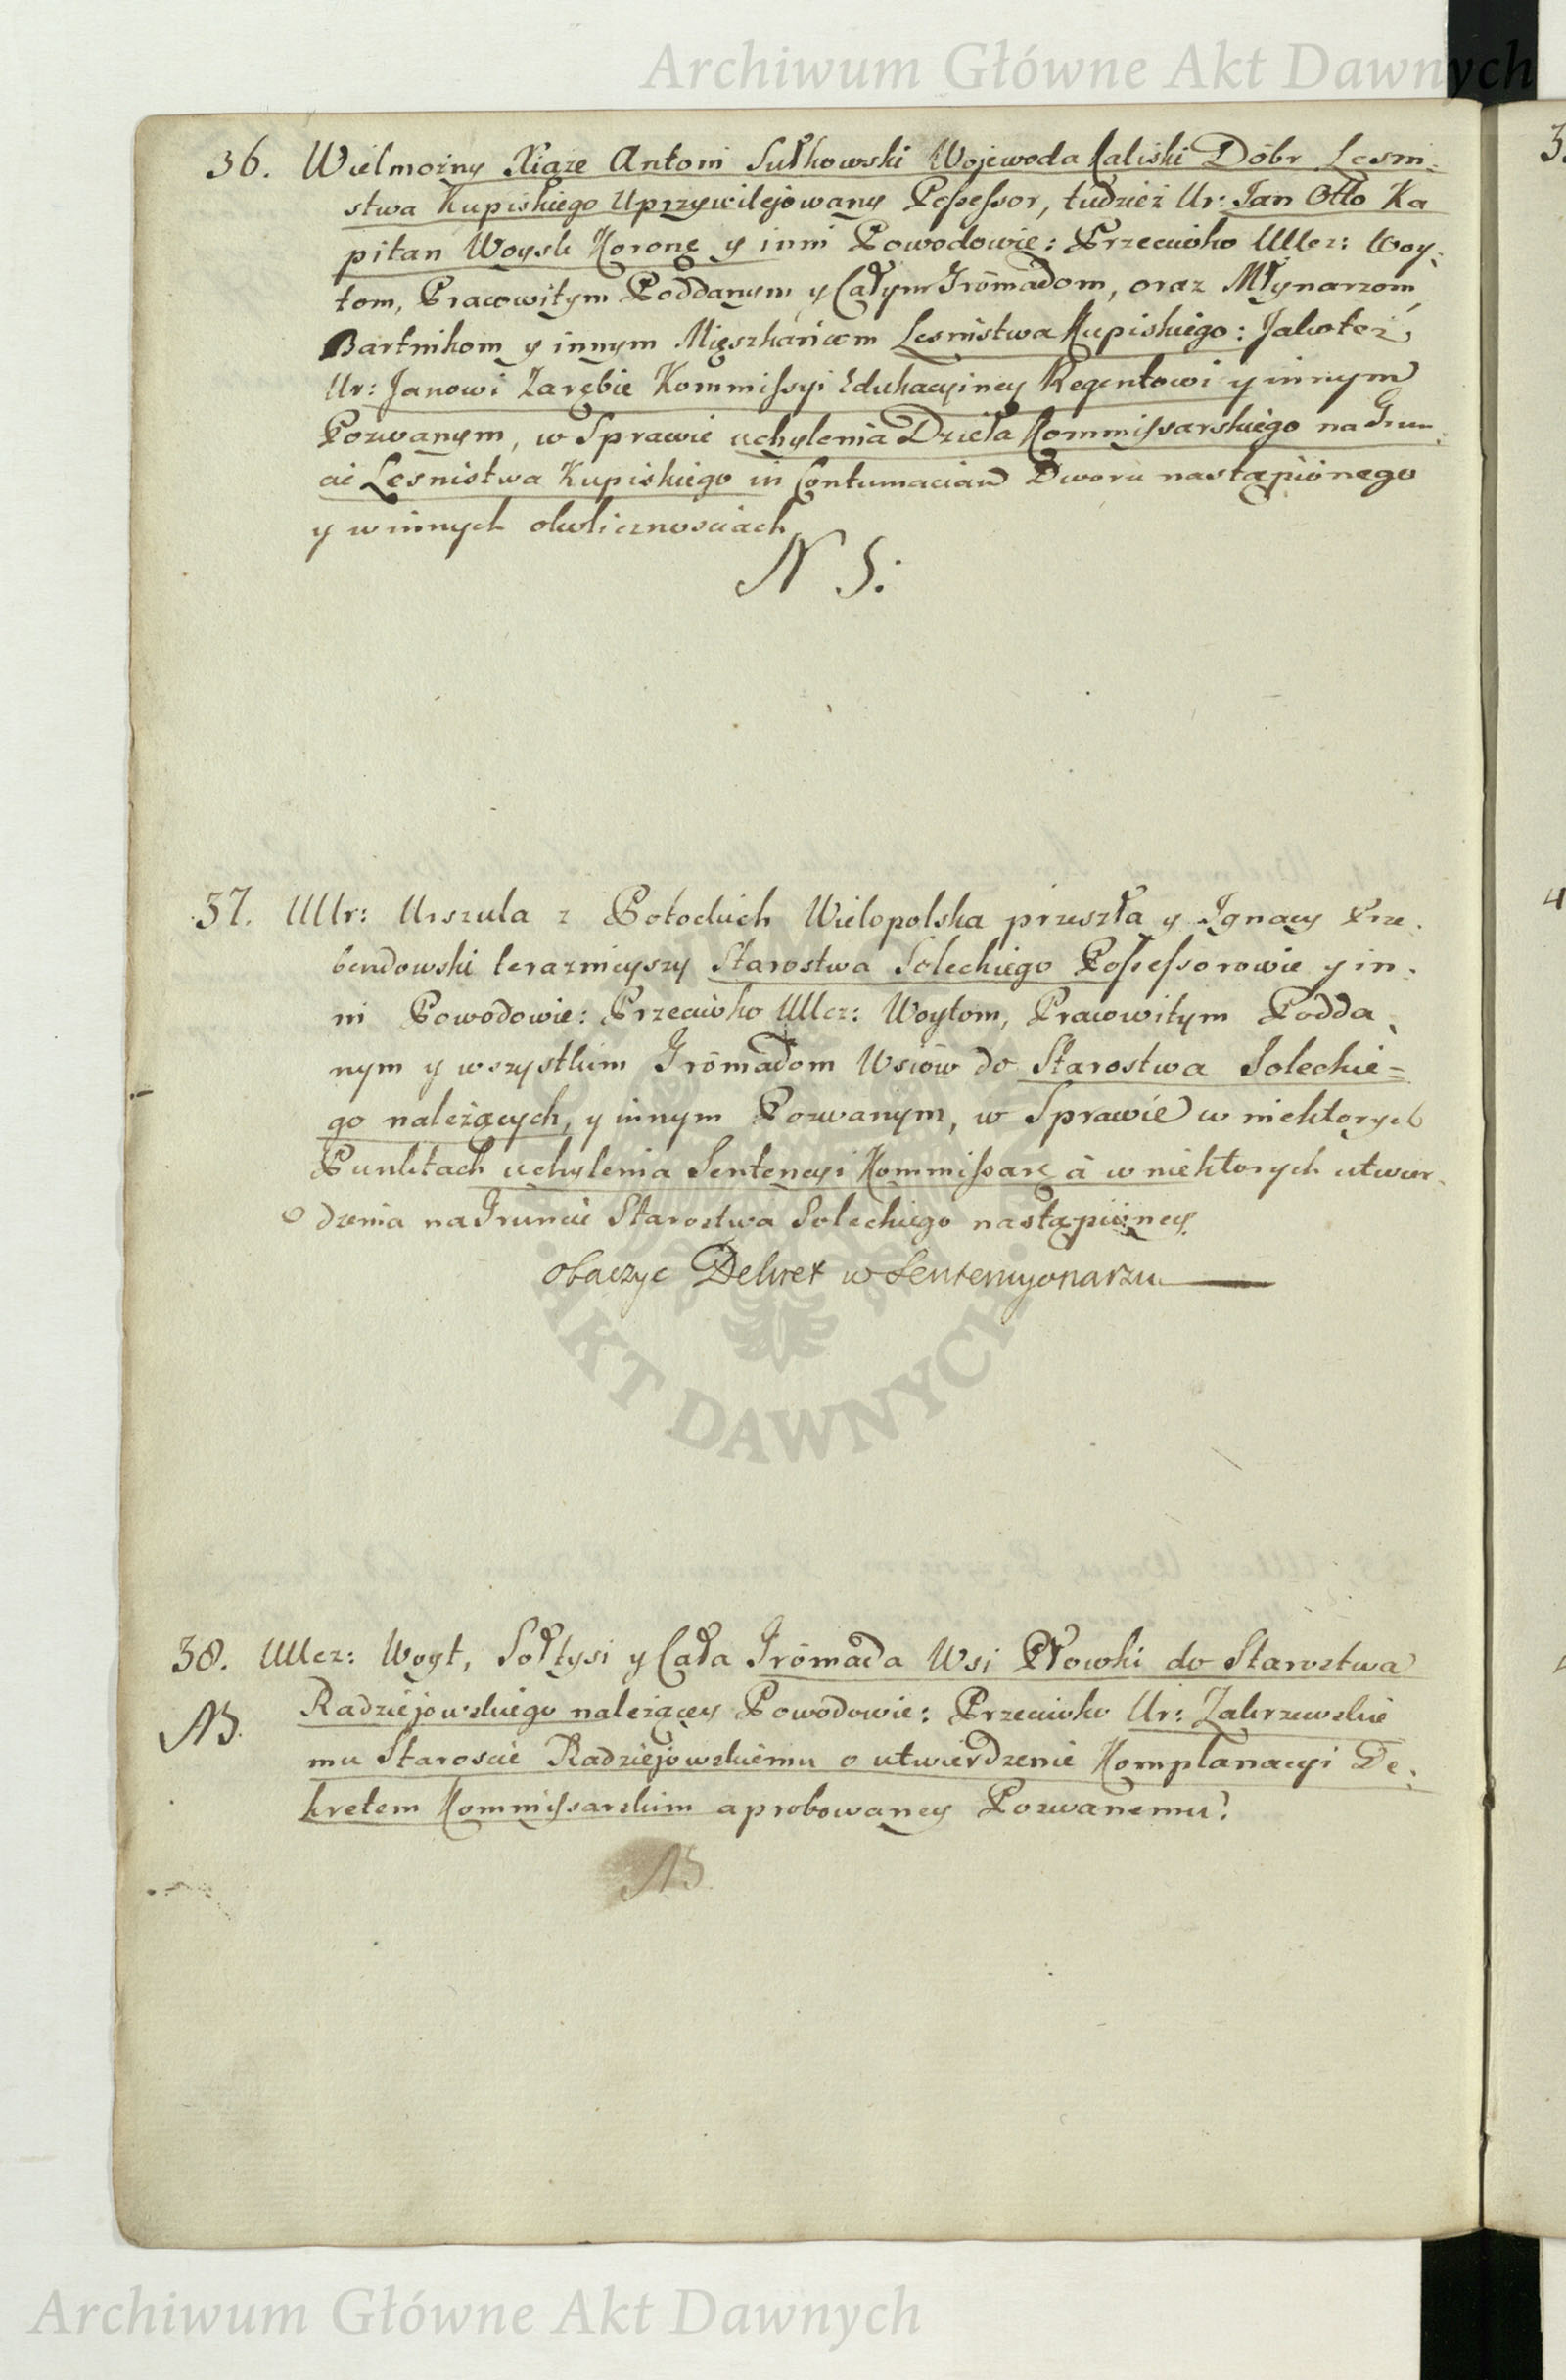 Archiwum Główne Akt Dawnych
36. Wielmożny Xiąze Antoni Sułkowski Wojewoda Kaliski Dóbr Lesni-
stwa Kupiskiego Uprzywilejowany Possessor, tudzież Ur: Jan Otto Ka
pitan Woysk Koronę y inni Powodowie: Przeciwko UUcz: Woy-
tom, Pracowitym Poddanym y Całym Gromadom, oraz Młynarzom
Bartnikom y innym Mięszkańcom Lesnistwa Kupiskiego: Jakoteż
Ur: Janowi Zarębie Kommissyi Edukacyiney Regentowi y innym
Pozwanym, w Sprawie uchylenia Dzieła Kommissarskiego na Grun-
cie Lesnistwa Kupiskiego in Contumaciam Dworu nastąpionego
y w innych okolicznosciach
N S:
37. UUr: Urszula z Potockich Wielopolska przeszła y Ignacy Prze-
bendowski teraznieyszy Starostwa Soleckiego Possessorowie y in-
ni Powodowie: Przeciwko UUcz: Woytom, Pracowitym Podda-
nym y wszystkim Gromadom Wsiów do Starostwa Soleckie=
go należących, y innym Pozwanym, w Sprawie w niektorych
Punktach uchylenia Sentencyi Kommissarę à w niektorych utwier-
dzenia na Gruncie Starostwa Soleckiego nastąpioney.
obaczyc Dekret w Sentencyonarzu
38. UUcz: Woyt, Sołtysi y Cała Gromada Wsi Płowki do Starostwa
Radziejowskiego należącey Powodowie: Przeciwko Ur: Zakrzewskie
NB.
mu Staroscie Radziejowskiemu o utwierdzenie Komplanacyi De-
kretem Kommissarskim aprobowaney Pozwanemu.
NB.
AKT DAWNYCH
Archiwum Główne Akt Dawnych